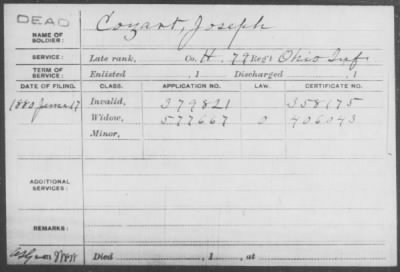 DEAD
NAME OF SOLDIER: Cozart, Joseph
SERVICE: Late rank, Co. H. 79 Reg't Ohio Inf.
TERM OF SERVICE: Enlisted , 1 Discharged , 1
DATE OF FILING. CLASS. APPLICATION NO. LAW. CERTIFICATE NO.
1880 June 17 Invalid, 379821 358175
Widow, 577667 406043
Minor,
ADDITIONAL SERVICES:
REMARKS:
Died , 1 , at